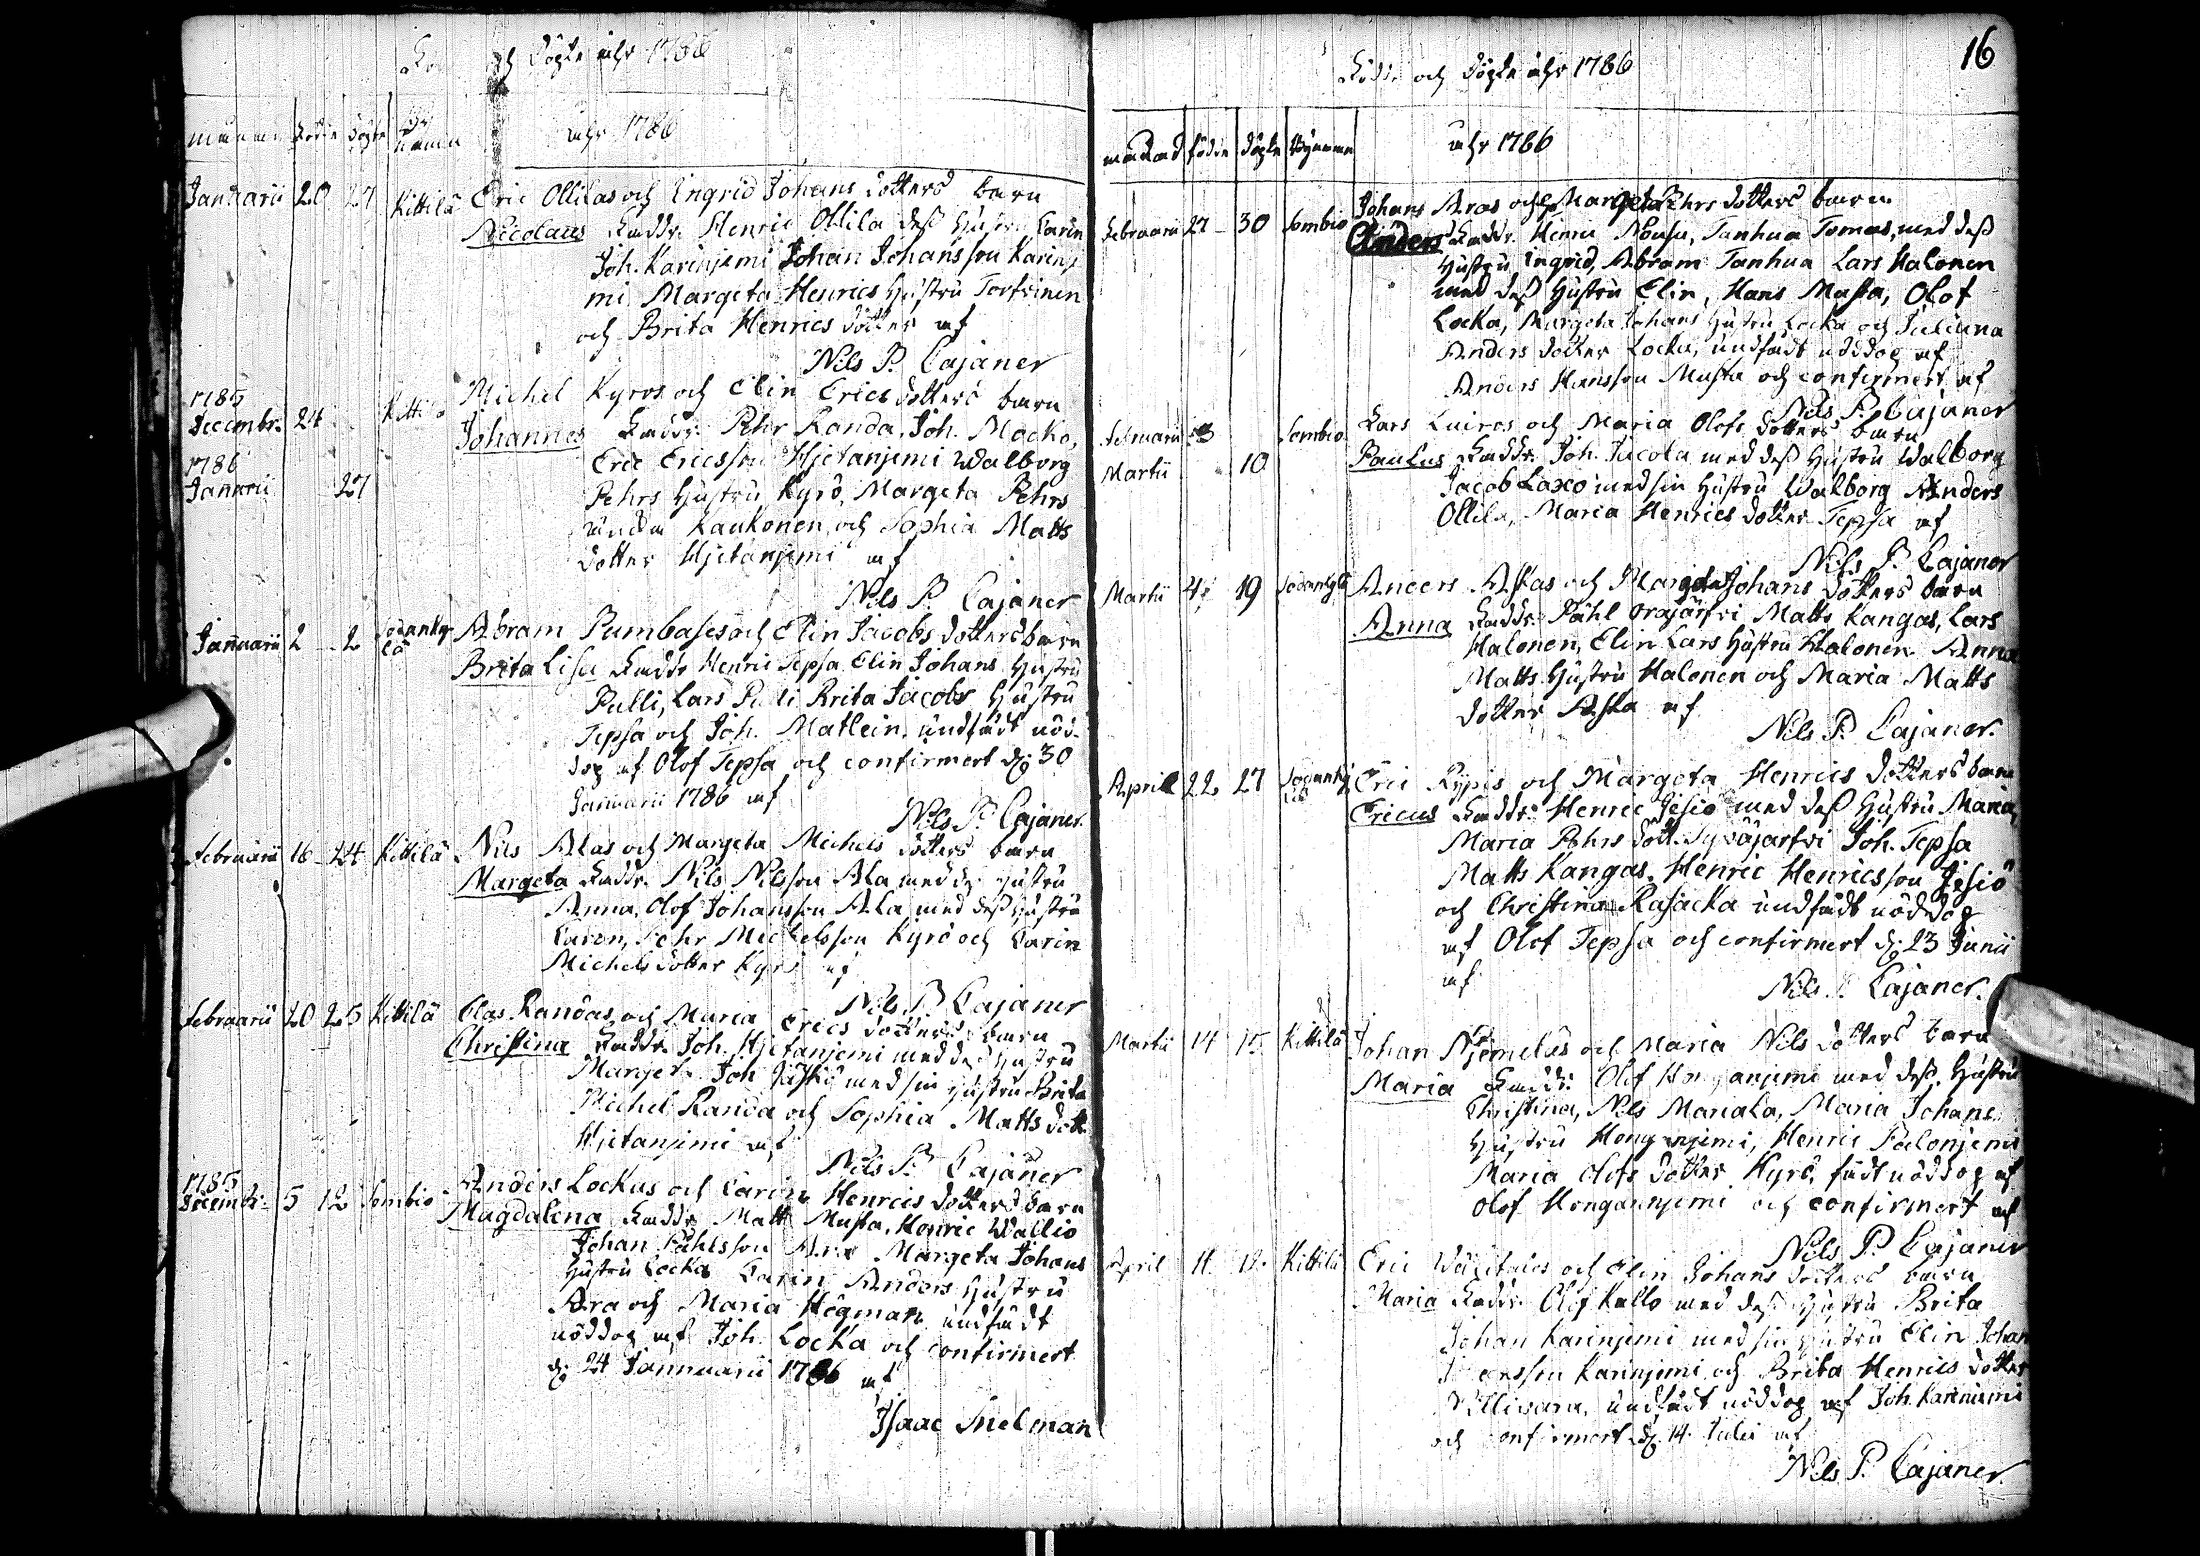 Döpte åhr 1786
månad Födde Döpte By namn åhr 1786
Januarii 20 27 Kittilä Eric Ollilas och Ingrid Johans dotters barn
Nicolaus Faddr. Henric Ollila dess hustru Carin
Joh. Karinjemi Johan Johansson Karinj
mi Margeta Henrics hustru Torfvinen
och Brita Henrics dotter af
Nils P. Cajaner
1785 Decembr. 24 Kittilä Michel Kyros och Elin Erics dotters barn
Johannes Faddr. Pehr Randa, Joh. Mocko,
1786 Januarii 27 Eric Ericsson Hjetanjemi Walborg
Pehrs hustru Kyrö, Margeta Pehrs
Kaukonen, och Sophia Matts
dotter Hjetanjemi af
Nils P. Cajaner
Januarii 2 2 Sodankylä Abram Pumbases och Elin Jacobs dotters barn
Brita Lisa Faddr Henric Tepsa, Elin Johans hustru
Pulli, Lars Pulli Brita Jacobs hustru
Tepsa och Joh. Matlein, undfådt nöd
dop af Olof Tepsa och confirmert d. 30
Januarii 1786 af
Nils P. Cajaner.
Februarii 16 24 Kittilä Nils Alas och Margeta Michels dotters barn
Margeta Faddr. Nils Nilsson Ala med dess hustru
Anna, Olof Johansson Ala med dess hustru
Caren, Pehr Michelsson Kyrö och Carin
Michels dotter Kyrö af
Nils P. Cajaner
Februarii 20 25 Kittilä Clas Randas och Maria Erics dotters barn
Christina Faddr. Joh. Hjetanjemi med dess hustru
Margeta Joh Jäskö med sin hustru Brita
Michel Randa och Sophia Matts dott
Hjetanjemi af
Nils P. Cajaner
1785 Decembr. 5 12 Sombio Anders Lockas och Carin Henrics dotters barn
Magdalena Faddr. Matt Musta, Henric Wallio
Johan Påhlsson Ara Margeta Johans
hustru Locka Carin Anders hustru
Ara och Maria Högman undfådt
nöddop af Joh. Locka och confirmert
d. 24 Jannuarii 1786 af
Isaac Snelman
16
Födde och Döpte åhr 1786
månad födde döpte Bynamn åhr 1786
Februarii 27 30 Sombio Johans Aras och Margeta Pehrs dotters barn
Anders Faddr. Henric Nousu, Tanhua Tomas, med dess
hustru Ingrid, Abram Tanhua Lars Halonen
med dess hustru Elin, Hans Musta, Olof
Locka, Margeta Johans hustru Locka och Juliana
Anders dotter Locka, undfådt nöddop af
Anders Hansson Musta och confirmert af
Nils P. Cajaner
Februarii 3 Sombio Lars Luiros och Maria Olofs dotters barn
Martii 10 Paulus Faddr. Joh. Jacola med dess hustru Walborg
Jacob Laxo med sin hustru Walborg Anders
Ollila, Maria Henrics dotter Tepsa af
Nils P. Cajaner
Martii 4 19 Sodankylä Anders Askas och Margeta Johans dotters barn
Anna Faddr. Påhl Orajärfvi Matts Kangas, Lars
Halonen, Elin Lars hustru Halonen Anna
Matts hustru Halonen och Maria Matts
dotter Aska af
Nils P. Cajaner.
Aprill 22 27 Sodankylä Eric Kypis och Margeta Henrics dotters barn
Ericus Faddr. Henric Jesiö med dess hustru Maria
Maria Pehrs dott. Syväjärfvi Joh. Tepsa
Matts Kangas, Henric Henricsson Jesiö
och Christina Rasacka undfådt nöddop
af Olof Tepsa och confirmert d. 23 Junii
af
Nils P. Cajaner.
Martii 14 15 Kittilä Johan Njemelas och Maria Nils dotters barn
Maria Faddr. Olof Honganjemi med dess hustru
Christina, Nils Mariala, Maria Johans
hustru Honganjemi, Henric Palonjemi
Maria Olofs dotter Kyrö, fådt nöddop af
Olof Hongannjemi och confirmert af
Nils P. Cajaner
April 11 12 Kittilä Eric och Elin Johans dotters barn
Maria Faddr. Olof Kallo med dess hustru Brita
Johan Karinjemi med sin hustru Elin Johan
Karinjemi och Brita Henrics dotter
undfådt nöddop af Joh. Karinjemi
och confirmert d. 14 Julii af
Nils P. Cajaner